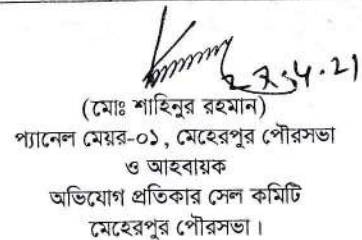 27.4.21
(মোঃ শাহিনুর রহমান)
প্যানেল মেয়র-০১, মেহেরপুর পৌরসভা
ও আহবায়ক
অভিযোগ প্রতিকার সেল কমিটি
মেহেরপুর পৌরসভা।